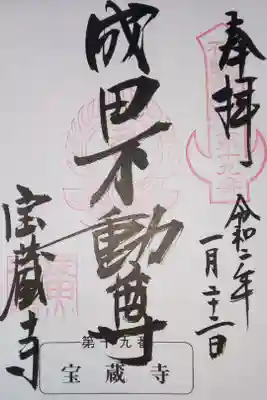 奉拝
令和二年
一月二十二日
成田不動尊
宝蔵寺
第十九番
宝蔵寺